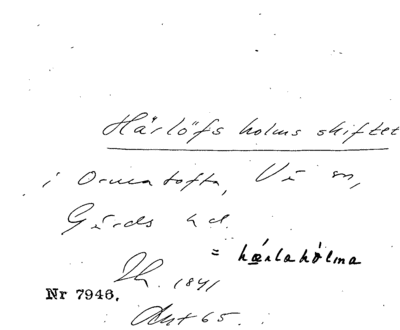 Härlöfs holms skiftet
i Ormatofta, Vä sn,
Gärds hd.
= hǽrlahòlma
Lh. 1841
Nr 7946.
Akt 65.